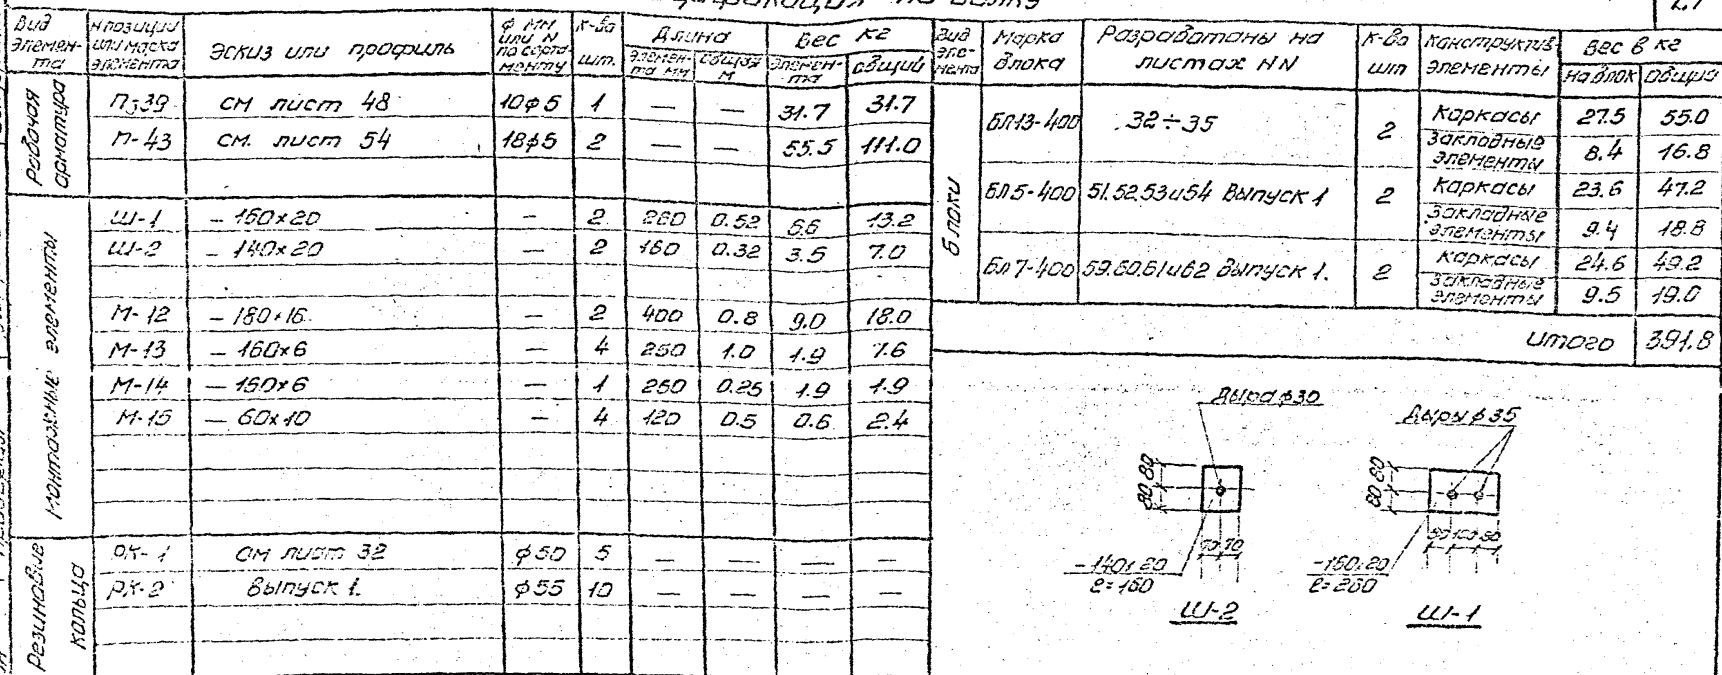 по балку
27
Вид элемен-та | N позиции или марка элемента | Эскиз или профиль | ф мм или N по сорта-менту | К-во шт. | Длина | Вес кг
элемен-та мм | общая м | элемен-та | общий
Рабочая арматура
П-39 | см лист 48 | 10ф5 | 1 | — | — | 31.7 | 31.7
П-43 | см. лист 54 | 18ф5 | 2 | — | — | 55.5 | 111.0
Монтажные элементы
Ш-1 | – 160×20 | – | 2 | 260 | 0.52 | 6.6 | 13.2
Ш-2 | – 140×20 | – | 2 | 160 | 0.32 | 3.5 | 7.0
М-12 | – 180×16 | – | 2 | 400 | 0.8 | 9.0 | 18.0
М-13 | – 160×6 | – | 4 | 250 | 1.0 | 1.9 | 7.6
М-14 | – 160×6 | – | 1 | 250 | 0.25 | 1.9 | 1.9
М-15 | – 60×10 | – | 4 | 120 | 0.5 | 0.6 | 2.4
Резиновые кольца
РК-1 | см лист 32 | ф50 | 5 | — | — | — | —
РК-2 | Выпуск 1. | ф55 | 10 | — | — | — | —
Вид эле-мента | Марка блока | Разработаны на листах NN | К-во шт | Конструктив. элементы | Вес в кг
на блок | общий
Блоки
БЛ13-400 | 32÷35 | 2 | Каркасы | 27.5 | 55.0
Закладные элементы | 8.4 | 16.8
БЛ5-400 | 51.52.53 и 54 Выпуск 1 | 2 | Каркасы | 23.6 | 47.2
Закладные элементы | 9.4 | 18.8
Бл7-400 | 59.60.61 и 62 Выпуск 1. | 2 | Каркасы | 24.6 | 49.2
Закладные элементы | 9.5 | 19.0
Итого | 391.8
Дыра ф30
Дыры ф35
80 80
80 80
70 70
80 100 80
–140×20
ℓ=160
–160×20
ℓ=260
Ш-2
Ш-1